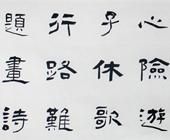 心險遊
子休歌
行路難
題畫詩